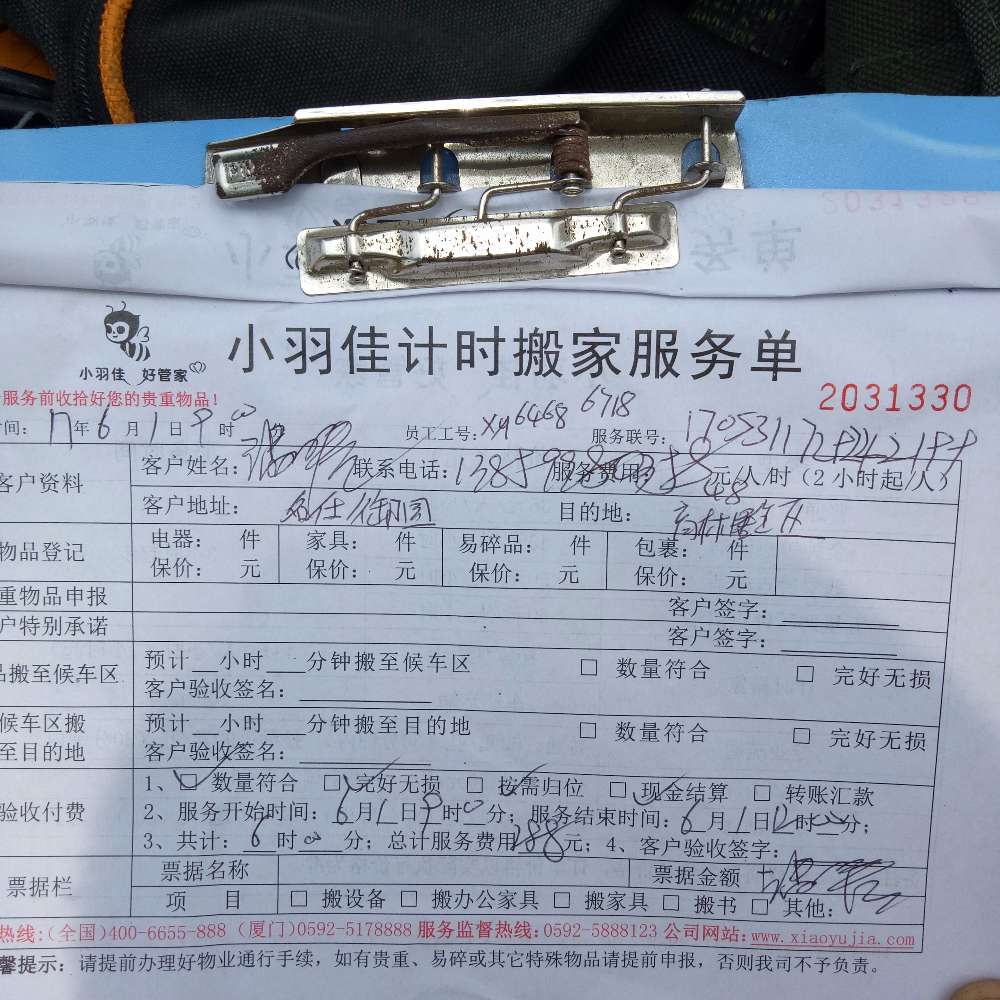 2031330
小羽佳 好管家
小羽佳计时搬家服务单
服务前收拾好您的贵重物品！
2031330
间：17年6月1日9时00 员工工号：xy6468 6718 服务联号：
客户资料
客户姓名： 联系电话： 服务费用： 48 元/人/时（2小时起/人）
客户地址：名仕御园 目的地：
物品登记
电器： 件 家具： 件 易碎品： 件 包裹： 件
保价： 元 保价： 元 保价： 元 保价： 元
重物品申报 客户签字：
户特别承诺 客户签字：
品搬至候车区
预计__小时___分钟搬至候车区 □ 数量符合 □ 完好无损
客户验收签名：
候车区搬
至目的地
预计__小时___分钟搬至目的地 □ 数量符合 □ 完好无损
客户验收签名：
验收付费
1、□ 数量符合 □ 完好无损 □ 按需归位 □ 现金结算 □ 转账汇款
2、服务开始时间：6月1日9时0分；服务结束时间：6月1日12时00分；
3、共计：6时00分；总计服务费用288元；4、客户验收签字：
票据栏
票据名称 票据金额
项 目 □ 搬设备 □ 搬办公家具 □ 搬家具 □ 搬书 □ 其他：
热线：(全国)400-6655-888 (厦门)0592-5178888 服务监督热线：0592-5888123 公司网站：www.xiaoyujia.com
馨提示：请提前办理好物业通行手续，如有贵重、易碎或其它特殊物品请提前申报，否则我司不予负责。